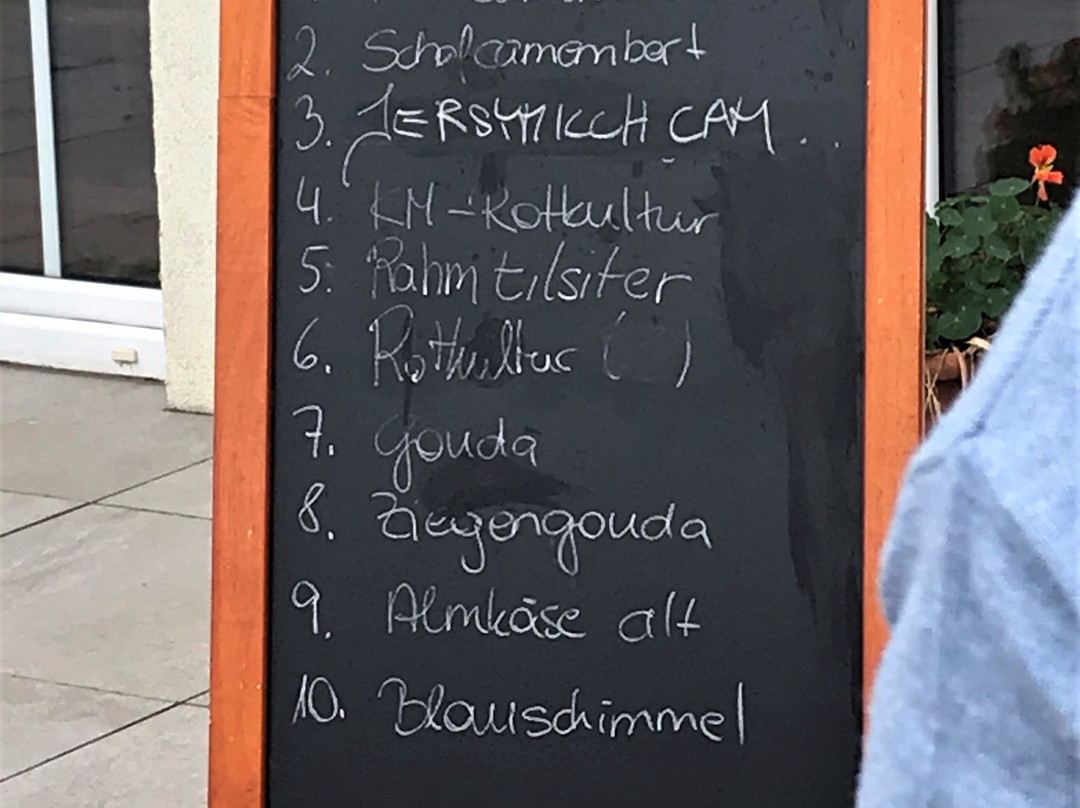 2. Schafcamembert
3. JERSYMILCH CAM . .
4. KM-Rotkultur
5. Rahmtilsiter
6. Rotkultur ( )
7. Gouda
8. Ziegengouda
9. Almkäse alt
10. Blauschimmel